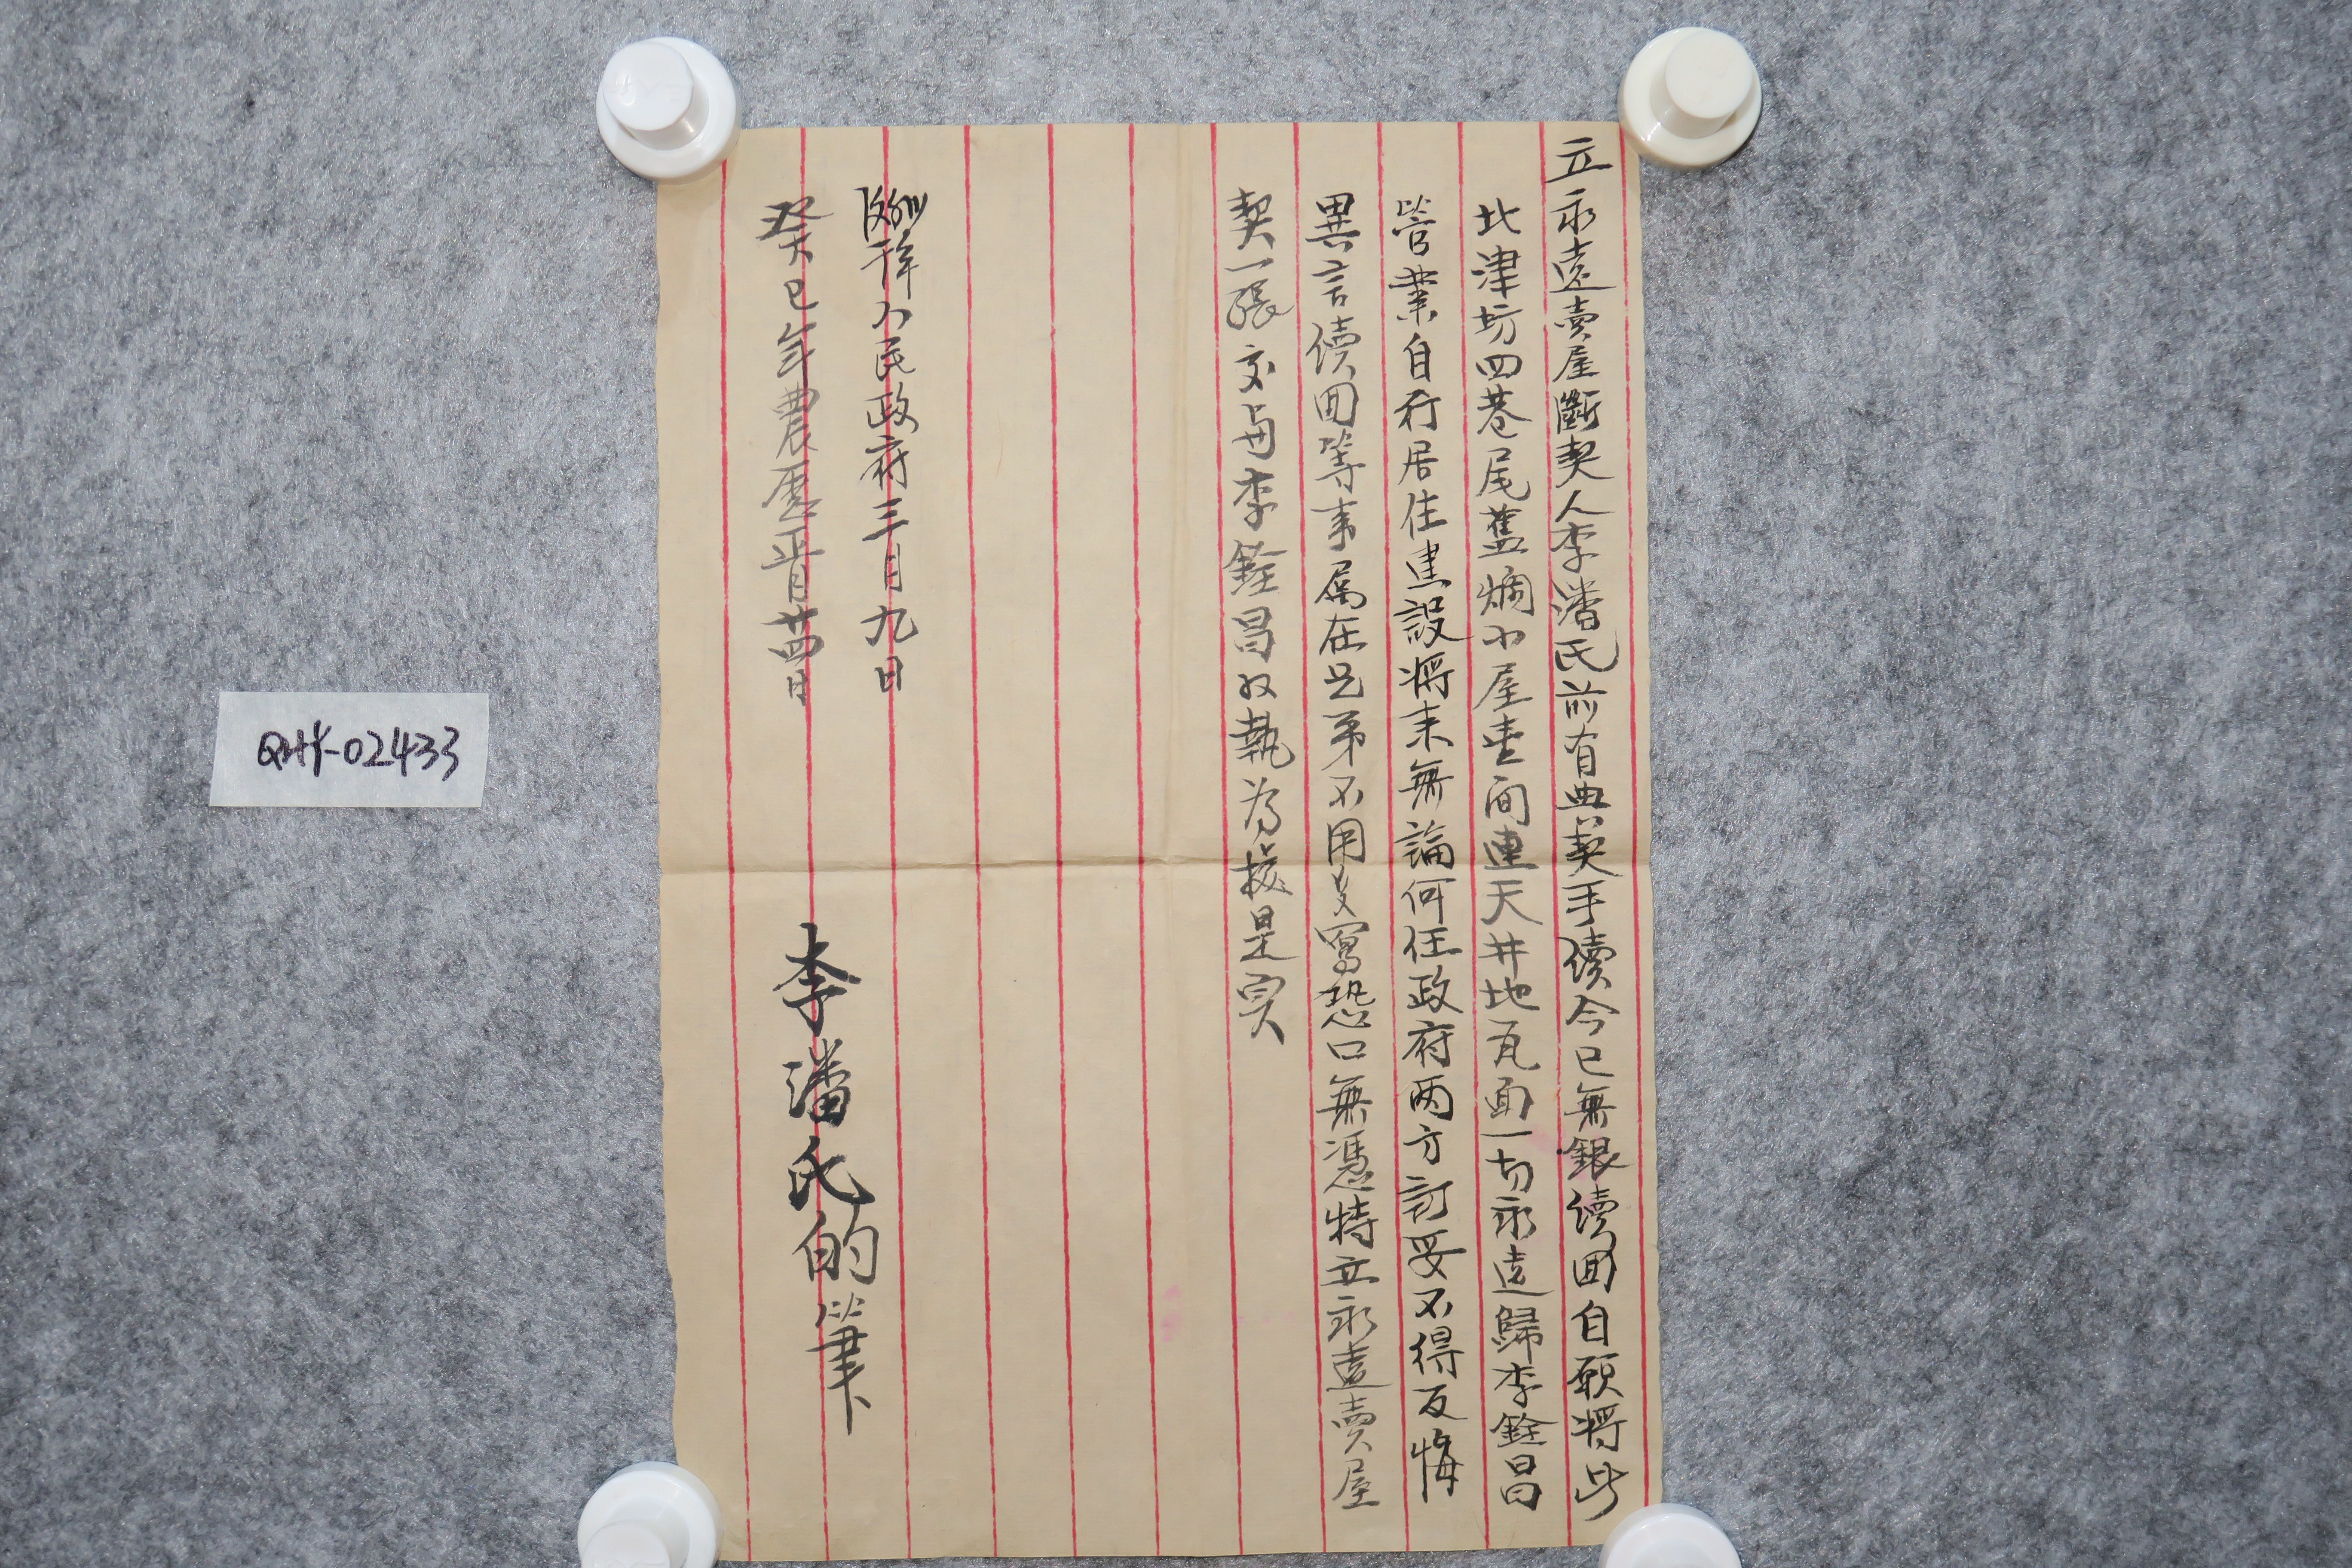 立永遠賣屋斷契人李潘氏前有典契手續今已無銀續回自願將此
北津坊四巷尾舊爛小屋壹间連天井地瓦面一切永遠歸李銓昌
管業自行居住建設將来無論何任政府两方訂妥不得反悔
異言續回等事属在兄弟不用多寫恐口無憑特立永遠賣屋
契一張交与李銓昌收執为據是实
人民政府三月九日
癸巳年農歷正月廿四日
李潘氏的筆
QHY-02433